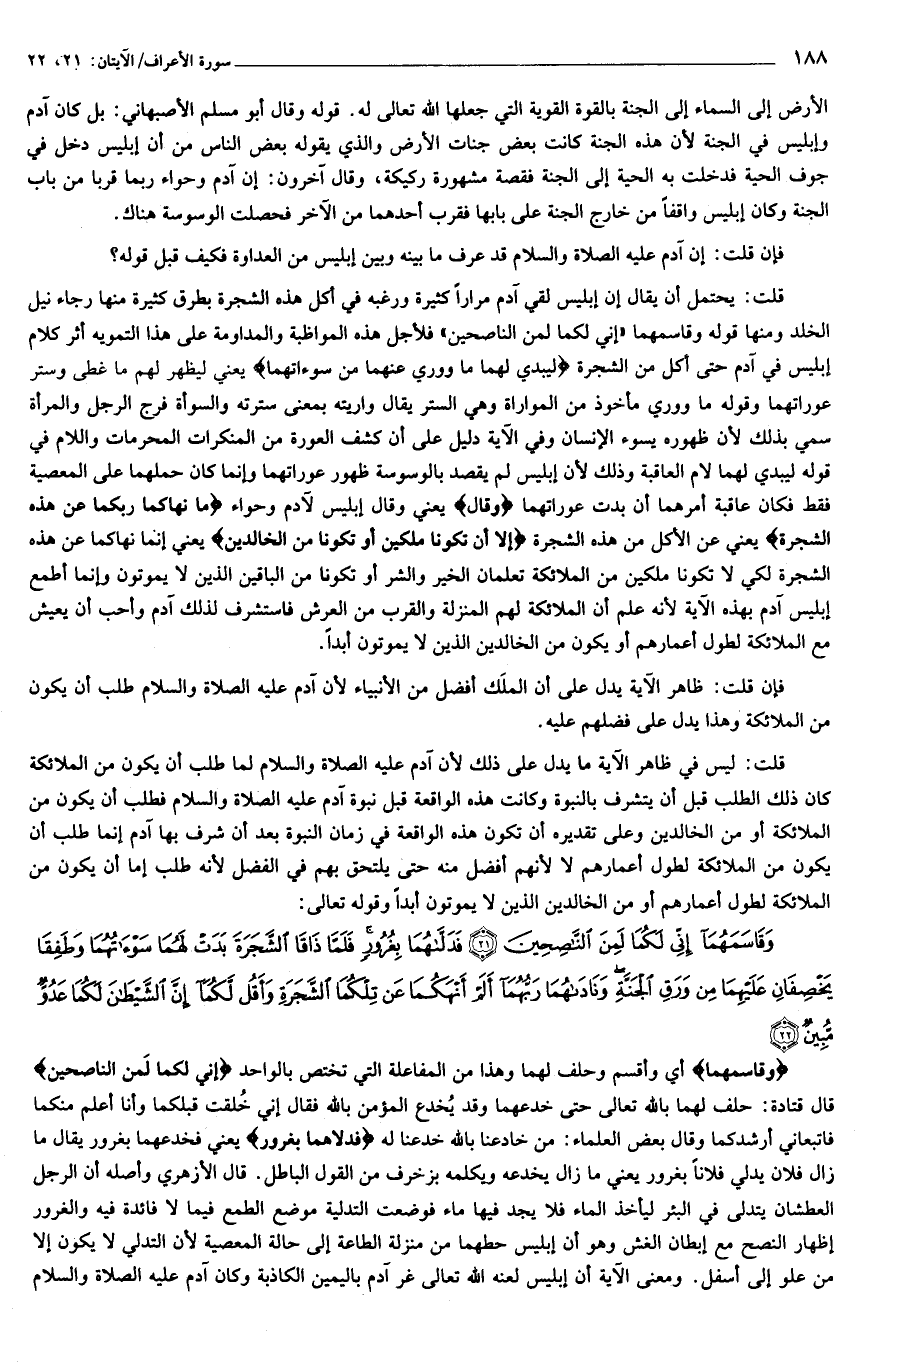 ١٨٨ سورة الأعراف/ الآيتان: ٢١، ٢٢
الأرض إلى السماء إلى الجنة بالقوة القوية التي جعلها الله تعالى له. قوله وقال أبو مسلم الأصبهاني: بل كان آدم
وإبليس في الجنة لأن هذه الجنة كانت بعض جنات الأرض والذي يقوله بعض الناس من أن إبليس دخل في
جوف الحية فدخلت به الحية إلى الجنة فقصة مشهورة ركيكة، وقال آخرون: إن آدم وحواء ربما قربا من باب
الجنة وكان إبليس واقفاً من خارج الجنة على بابها فقرب أحدهما من الآخر فحصلت الوسوسة هناك.
فإن قلت: إن آدم عليه الصلاة والسلام قد عرف ما بينه وبين إبليس من العداوة فكيف قبل قوله؟
قلت: يحتمل أن يقال إن إبليس لقي آدم مراراً كثيرة ورغبه في أكل هذه الشجرة بطرق كثيرة منها رجاء نيل
الخلد ومنها قوله وقاسمهما «إني لكما لمن الناصحين» فلأجل هذه المواظبة والمداومة على هذا التمويه أثر كلام
إبليس في آدم حتى أكل من الشجرة ﴿ليبدي لهما ما ووري عنهما من سوءاتهما﴾ يعني ليظهر لهم ما غطى وستر
عوراتهما وقوله ما ووري مأخوذ من المواراة وهي الستر يقال واريته بمعنى سترته والسوأة فرج الرجل والمرأة
سمي بذلك لأن ظهوره يسوء الإنسان وفي الآية دليل على أن كشف العورة من المنكرات المحرمات واللام في
قوله ليبدي لهما لام العاقبة وذلك لأن إبليس لم يقصد بالوسوسة ظهور عوراتهما وإنما كان حملهما على المعصية
فقط فكان عاقبة أمرهما أن بدت عوراتهما ﴿وقال﴾ يعني وقال إبليس لآدم وحواء ﴿ما نهاكما ربكما عن هذه
الشجرة﴾ يعني عن الأكل من هذه الشجرة ﴿إلا أن تكونا ملكين أو تكونا من الخالدين﴾ يعني إنما نهاكما عن هذه
الشجرة لكي لا تكونا ملكين من الملائكة تعلمان الخير والشر أو تكونا من الباقين الذين لا يموتون وإنما أطمع
إبليس آدم بهذه الآية لأنه علم أن الملائكة لهم المنزلة والقرب من العرش فاستشرف لذلك آدم وأحب أن يعيش
مع الملائكة لطول أعمارهم أو يكون من الخالدين الذين لا يموتون أبداً.
فإن قلت: ظاهر الآية يدل على أن الملَك أفضل من الأنبياء لأن آدم عليه الصلاة والسلام طلب أن يكون
من الملائكة وهذا يدل على فضلهم عليه.
قلت: ليس في ظاهر الآية ما يدل على ذلك لأن آدم عليه الصلاة والسلام لما طلب أن يكون من الملائكة
كان ذلك الطلب قبل أن يتشرف بالنبوة وكانت هذه الواقعة قبل نبوة آدم عليه الصلاة والسلام فطلب أن يكون من
الملائكة أو من الخالدين وعلى تقديره أن تكون هذه الواقعة في زمان النبوة بعد أن شرف بها آدم إنما طلب أن
يكون من الملائكة لطول أعمارهم لا لأنهم أفضل منه حتى يلتحق بهم في الفضل لأنه طلب إما أن يكون من
الملائكة لطول أعمارهم أو من الخالدين الذين لا يموتون أبداً وقوله تعالى:
وَقَاسَمَهُمَآ إِنِّي لَكُمَا لَمِنَ ٱلنَّٰصِحِينَ ﴿٢١﴾ فَدَلَّىٰهُمَا بِغُرُورٍۚ فَلَمَّا ذَاقَا ٱلشَّجَرَةَ بَدَتْ لَهُمَا سَوْءَٰتُهُمَا وَطَفِقَا
يَخْصِفَانِ عَلَيْهِمَا مِن وَرَقِ ٱلْجَنَّةِۖ وَنَادَىٰهُمَا رَبُّهُمَآ أَلَمْ أَنْهَكُمَا عَن تِلْكُمَا ٱلشَّجَرَةِ وَأَقُل لَّكُمَآ إِنَّ ٱلشَّيْطَٰنَ لَكُمَا عَدُوٌّ
مُّبِينٌ ﴿٢٢﴾
﴿وقاسمهما﴾ أي وأقسم وحلف لهما وهذا من المفاعلة التي تختص بالواحد ﴿إني لكما لَمن الناصحين﴾
قال قتادة: حلف لهما بالله تعالى حتى خدعهما وقد يُخدع المؤمن بالله فقال إني خُلقت قبلكما وأنا أعلم منكما
فاتبعاني أرشدكما وقال بعض العلماء: من خادعنا بالله خدعنا له ﴿فدلاهما بغرور﴾ يعني فخدعهما بغرور يقال ما
زال فلان يدلي فلاناً بغرور يعني ما زال يخدعه ويكلمه بزخرف من القول الباطل. قال الأزهري وأصله أن الرجل
العطشان يتدلى في البئر ليأخذ الماء فلا يجد فيها ماء فوضعت التدلية موضع الطمع فيما لا فائدة فيه والغرور
إظهار النصح مع إبطان الغش وهو أن إبليس حطهما من منزلة الطاعة إلى حالة المعصية لأن التدلي لا يكون إلا
من علو إلى أسفل. ومعنى الآية أن إبليس لعنه الله تعالى غر آدم باليمين الكاذبة وكان آدم عليه الصلاة والسلام